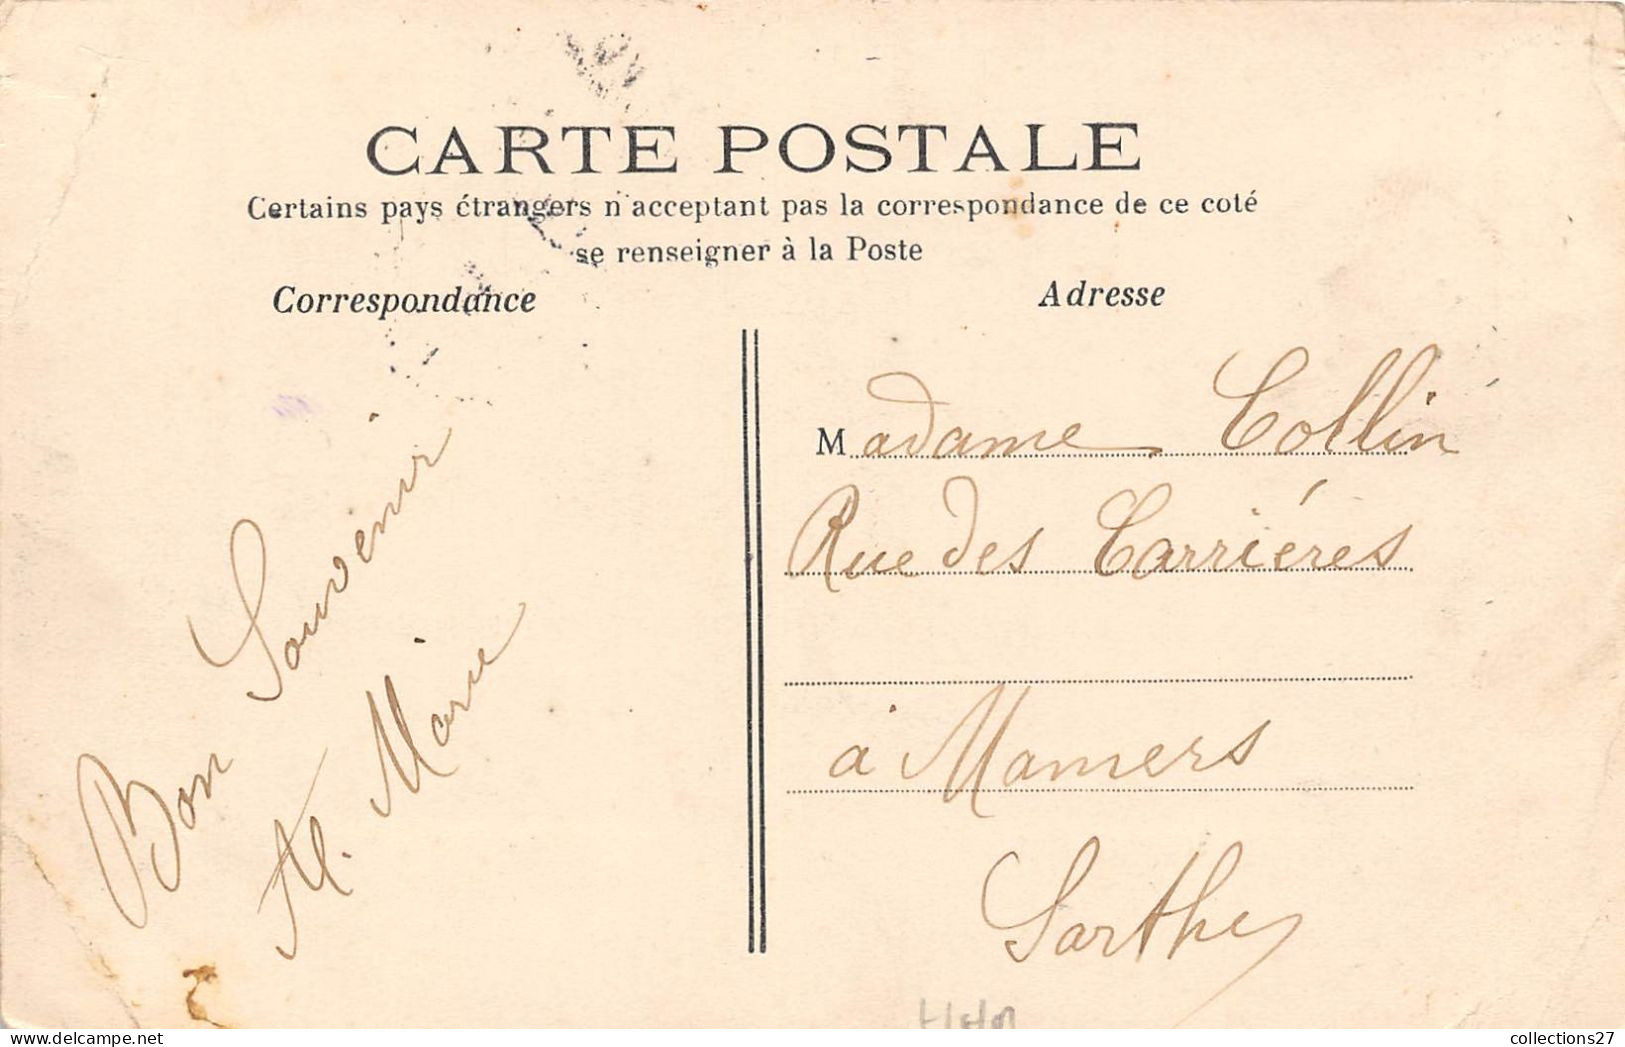 CARTE POSTALE
Certains pays étrangers n'acceptant pas la correspondance de ce coté
se renseigner à la Poste
Correspondance
Adresse
Bon Souvenir
Al. Marie
Madame Collin
Rue des Carriéres
à Mamers
Sarthe
collections27